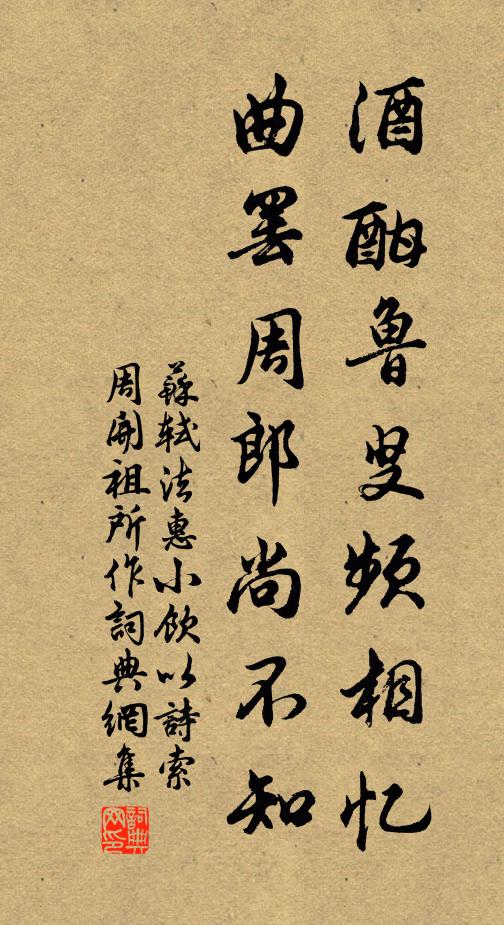 酒酣鲁叟频相忆
曲罢周郎尚不知
蘇軾法惠小飲以詩索
周開祖所作詞典網集
詞典網印